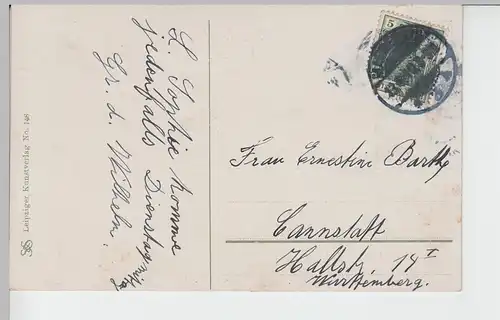 L. Sophie komme
jedenfalls Dienstag
Gr. d. Wilhelm.
Leipziger Kunstverlag No. 148
5
Frau Ernestine Barth
Cannstatt
Hallstr. 14 I
Württemberg.